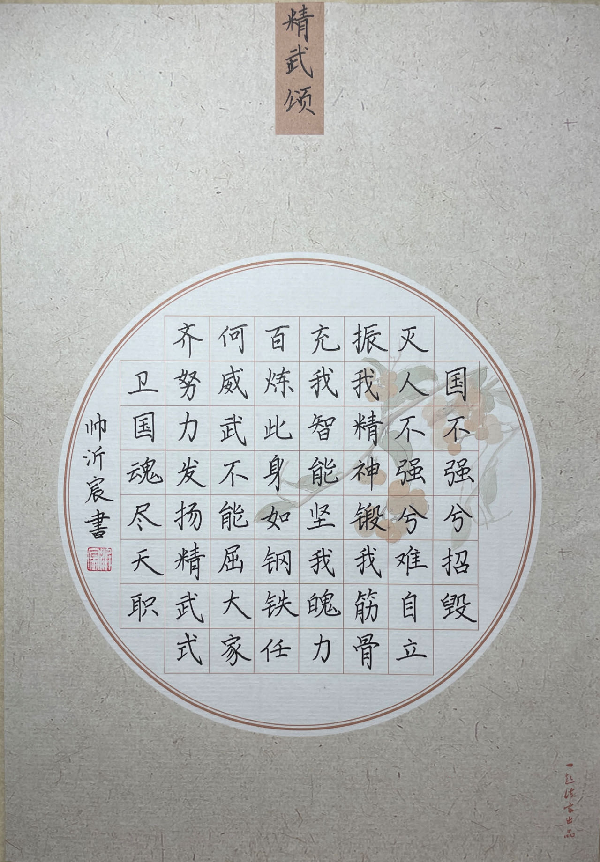 精武颂
国不强兮招毁
灭人不强兮难自立
振我精神锻我筋骨
充我智能坚我魄力
百炼此身如钢铁任
何威武不能屈大家
齐努力发扬精武式
卫国魂尽天职
帅沂宸書